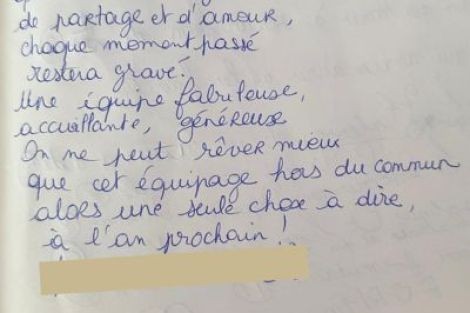 de partage et d'amour,
chaque moment passé
restera gravé.
Une équipe fabuleuse,
accuillante, généreuse
On ne peut rêver mieux
que cet équipage hors du commun
alors une seule chose à dire,
à l'an prochain !